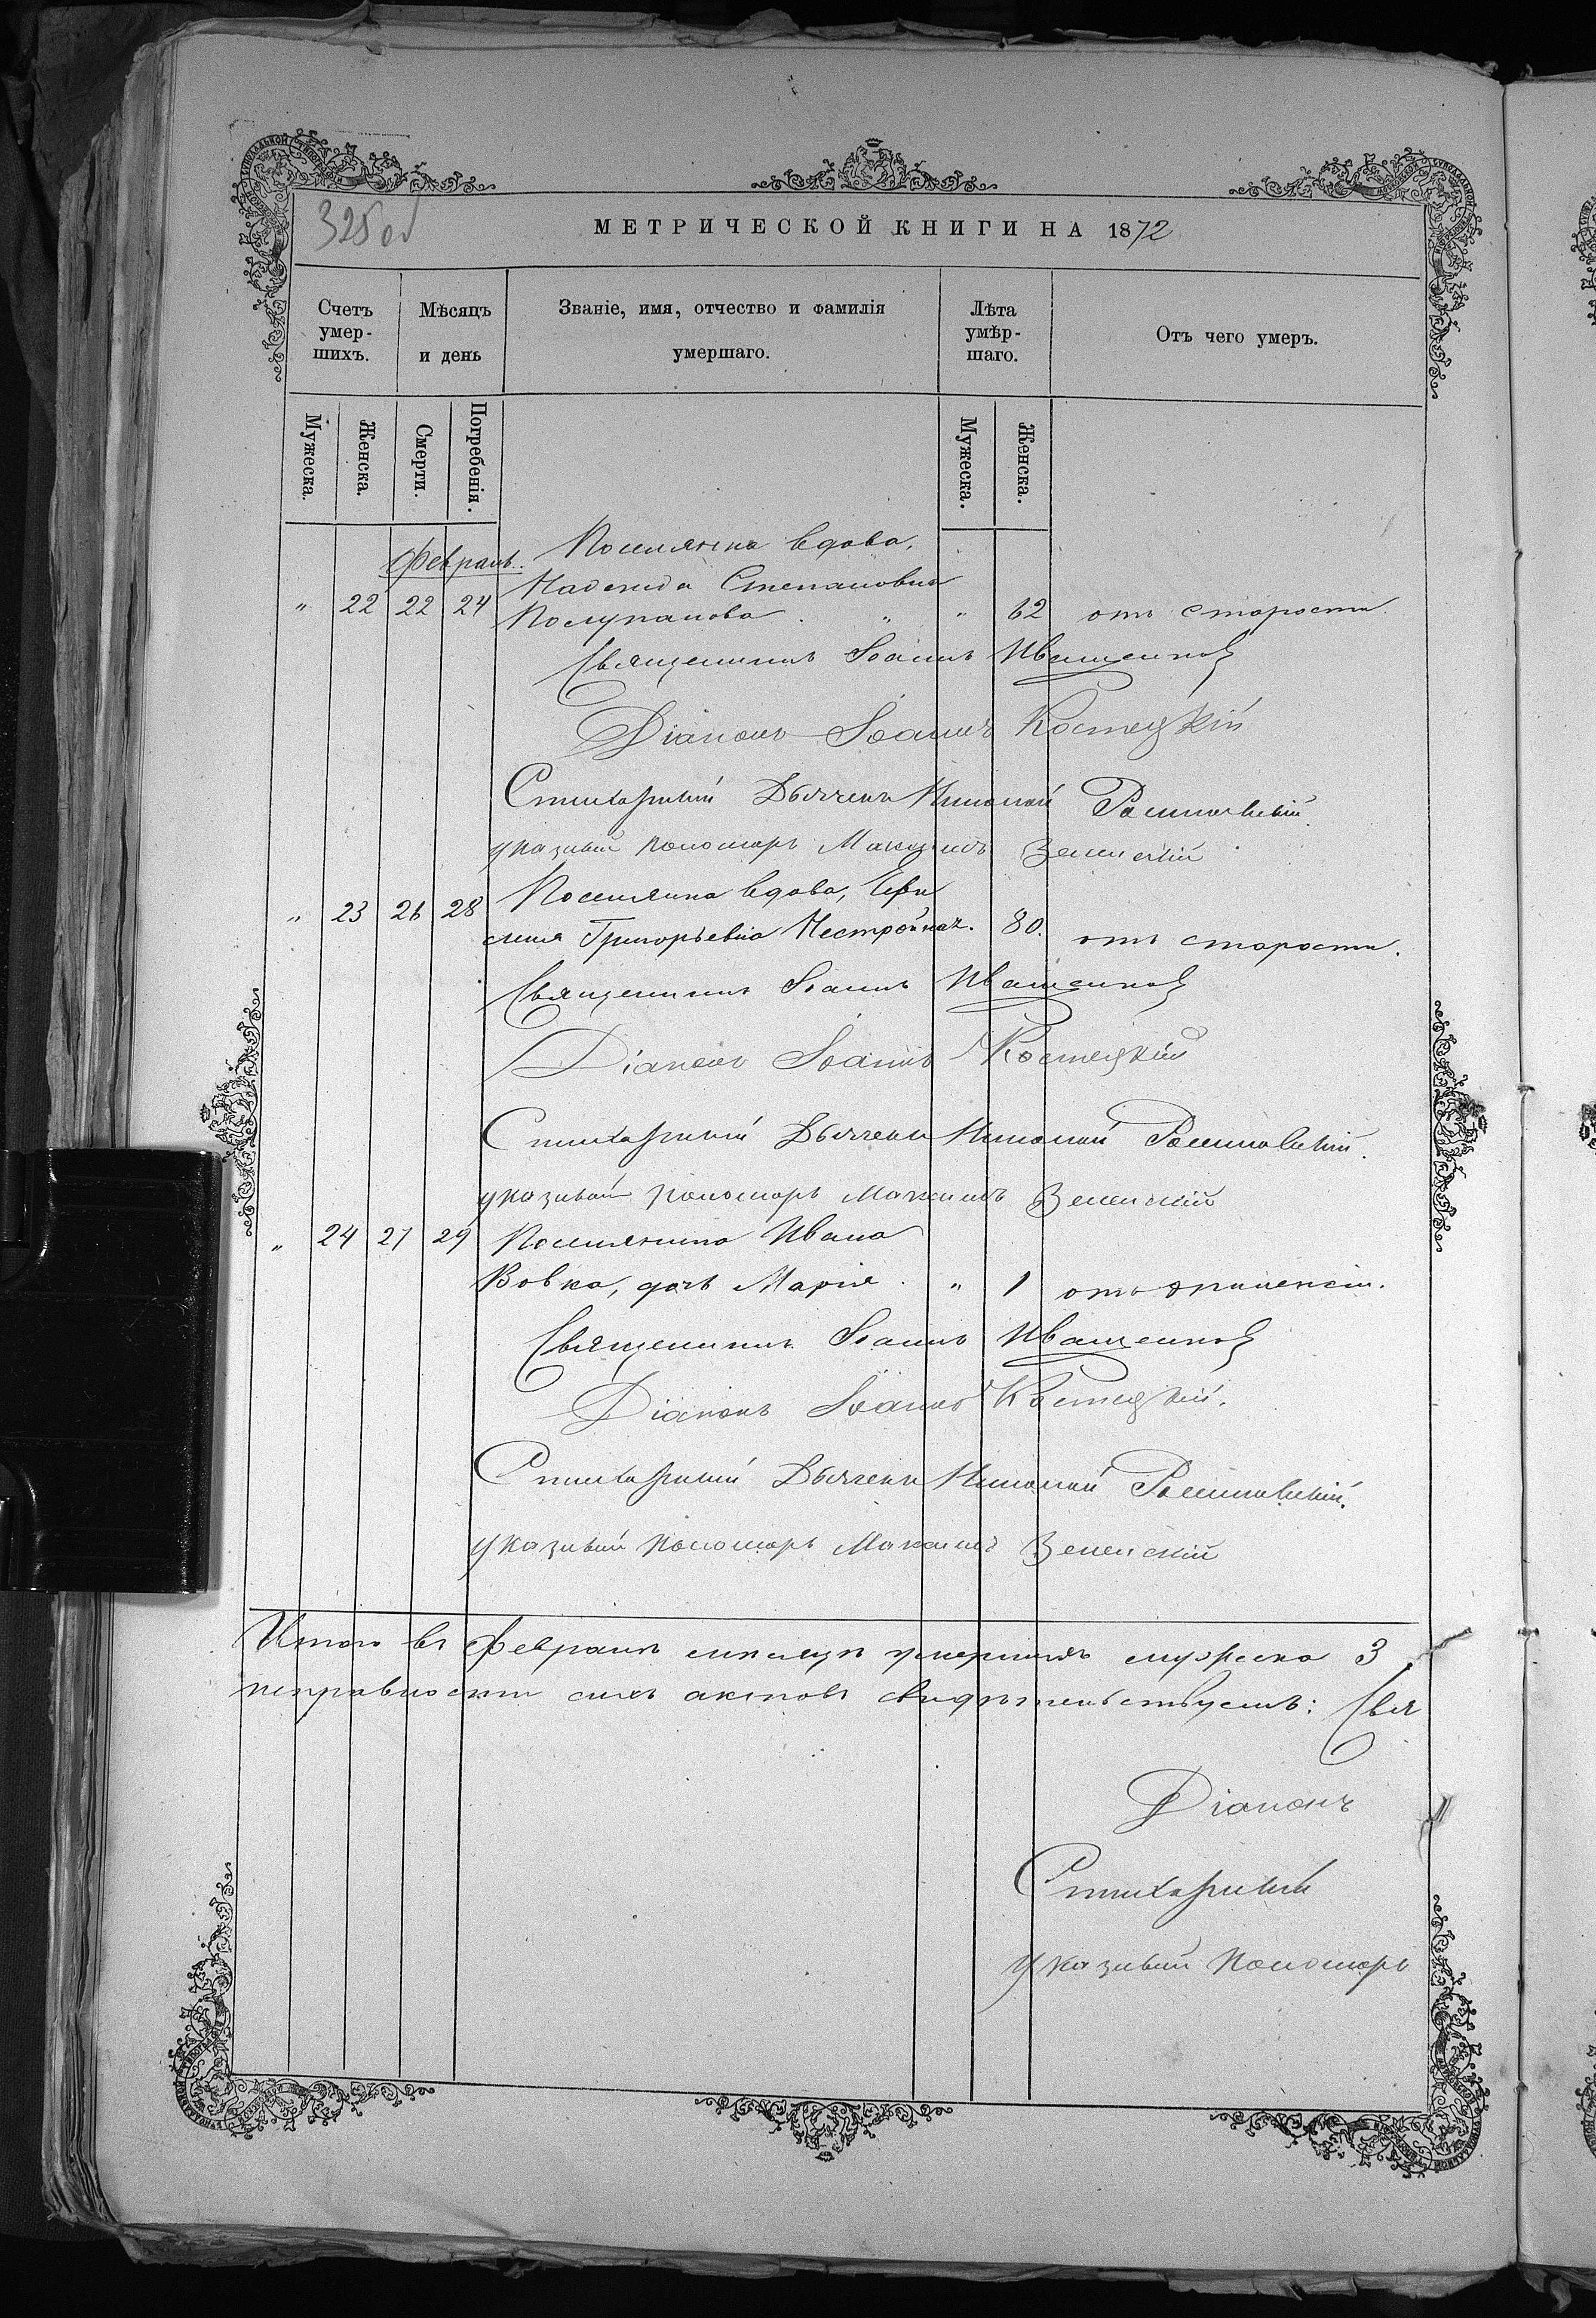 325 об
МЕТРИЧЕСКОЙ КНИГИ НА 1872
Счетъ умер-шихъ.
Мѣсяцъ и день
Званіе, имя, отчество и фамилія умершаго.
Лѣта умѣр-шаго.
Отъ чего умеръ.
Мужеска.
Женска.
Смерти.
Погребенія.
Мужеска.
Женска.
Февраль.
Поселянка вдова,
Надежда Степановна
" 22 22 24 Полупанова . " " 62 отъ старости
Священникъ Іоаннъ Иващенко
Діаконъ Іоаннъ Костецкій
Стихарный Дьячекъ Николай
указный пономарь Максимъ Зеленскій
Поселянка вдова, Евфи
" 23 26 28 мія Григорьевна Нестройная. 80. отъ старости.
Священникъ Іоаннъ Иващенко
Діаконъ Іоаннъ Костецкій
Стихарный Дьячекъ Николай
указный пономарь Максимъ Зеленскій
" 24 27 29 Поселянина Ивана
Вовка, дочь Марія . " 1 отъ
Священникъ Іоаннъ Иващенко
Діаконъ Іоаннъ Костецкій.
Стихарный Дьячекъ Николай
указный пономарь Максимъ Зеленскій
Итого въ Февралѣ мѣсяцѣ умершихъ мужеска 3
исправности сихъ актовъ свидѣтельствуемъ: Свя
Діаконъ
Стихарный
указный пономарь